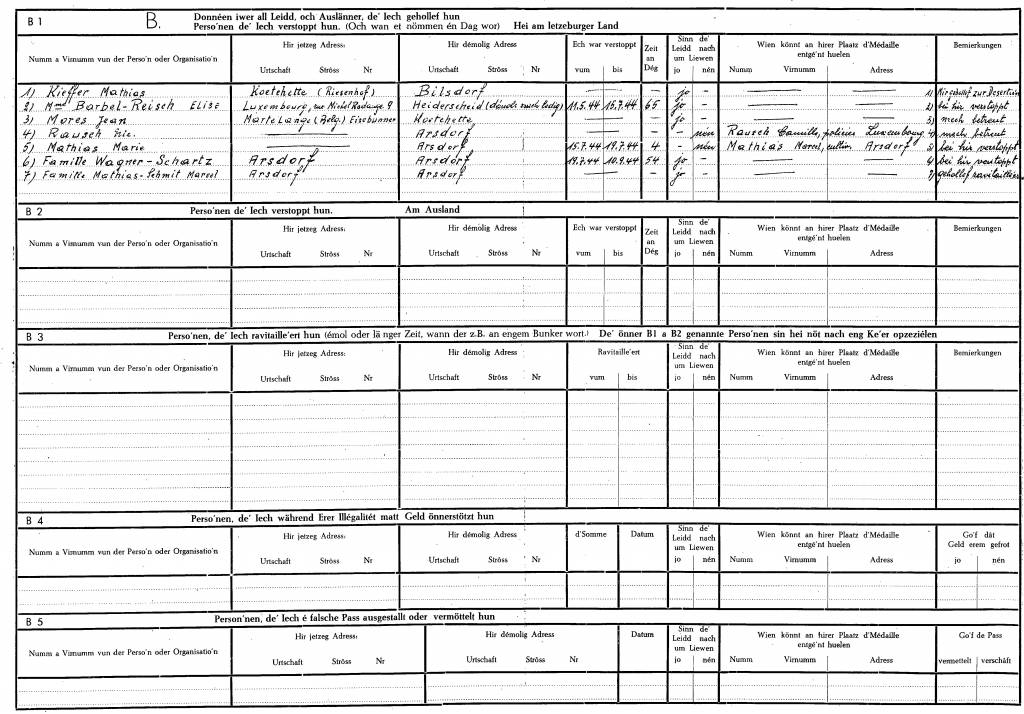 B 1 B. Donnéen iwer all Leidd, och Auslänner, de' Iech gehollef hun
Perso'nen de' Iech verstoppt hun. (Och wan et nömmen én Dag wor) Hei am letzeburger Land
Numm a Virnumm vun der Perso'n oder Organisatio'n
Hir jetzeg Adress:
Urtschaft Ströss Nr
Hir démolig Adress
Urtschaft Ströss Nr
Ech war verstoppt
vum bis
Zeit an Dég
Sinn de' Leidd nach um Liewen
jo nén
Wien könnt an hirer Plaatz d'Médaille entgé'nt huelen
Numm Virnumm Adress
Bemierkungen
1) Kieffer Mathias Koetchette (Riesenhof) Bilsdorf — — — jo - — — 1)
2) Mme Barbel-Reisch Elise Luxembourg, rue Michel Rodange 9 Heiderscheid 11.5.44 15.7.44 65 jo - — — 2) bei hir verstoppt
3) Mores Jean Martelange (Belg.) Eisebunner Koetchette — — jo - — — 3) mech betreut
4) Rausch Nic. Arsdorf — — - nén Rausch Camille, policier Luxembourg 4) mech betreut
5) Mathias Marie — Arsdorf 15.7.44 19.7.44 4 - nén Mathias Marcel, Arsdorf bei hir verstoppt
6) Famille Wagner-Schartz Arsdorf Arsdorf 19.7.44 10.9.44 54 jo - — — bei hir verstoppt
7) Famille Mathias-Schmit Marcel Arsdorf Arsdorf — — jo - — — gehollef
B 2 Perso'nen de' Iech verstoppt hun. Am Ausland
Numm a Virnumm vun der Perso'n oder Organisatio'n
Hir jetzeg Adress:
Urtschaft Ströss Nr
Hir démolig Adress
Urtschaft Ströss Nr
Ech war verstoppt
vum bis
Zeit an Dég
Sinn de' Leidd nach um Liewen
jo nén
Wien könnt an hirer Plaatz d'Médaille entgé'nt huelen
Numm Virnumm Adress
Bemierkungen
B 3 Perso'nen, de' Iech ravitaille'ert hun (émol oder lä nger Zeit, wann der z.B. an engem Bunker wort.) De' önner B1 a B2 genannte Perso'nen sin hei nöt nach eng Ke'er opzeziélen
Numm a Virnumm vun der Perso'n oder Organisatio'n
Hir jetzeg Adress:
Urtschaft Ströss Nr
Hir démolig Adress
Urtschaft Ströss Nr
Ravitaille'ert
vum bis
Sinn de' Leidd nach um Liewen
jo nén
Wien könnt an hirer Plaatz d'Médaille entgé'nt huelen
Numm Virnumm Adress
Bemierkungen
B 4 Perso'nen, de' Iech während Erer Illégalitét matt Geld önnerstötzt hun
Numm a Virnumm vun der Perso'n oder Organisatio'n
Hir jetzeg Adress:
Urtschaft Ströss Nr
Hir démolig Adress
Urtschaft Ströss Nr
d'Somme
Datum
Sinn de' Leidd nach um Liewen
jo nén
Wien könnt an hirer Plaatz d'Médaille entgé'nt huelen
Numm Virnumm Adress
Go'f dât Geld erem gefrot
jo nén
B 5 Perso'nen, de' Iech é falsche Pass ausgestallt oder vermöttelt hun
Numm a Virnumm vun der Perso'n oder Organisatio'n
Hir jetzeg Adress:
Urtschaft Ströss Nr
Hir démolig Adress
Urtschaft Ströss Nr
Datum
Sinn de' Leidd nach um Liewen
jo nén
Wien könnt an hirer Plaatz d'Médaille entgé'nt huelen
Numm Virnumm Adress
Go'f de Pass
vermettelt verschâft